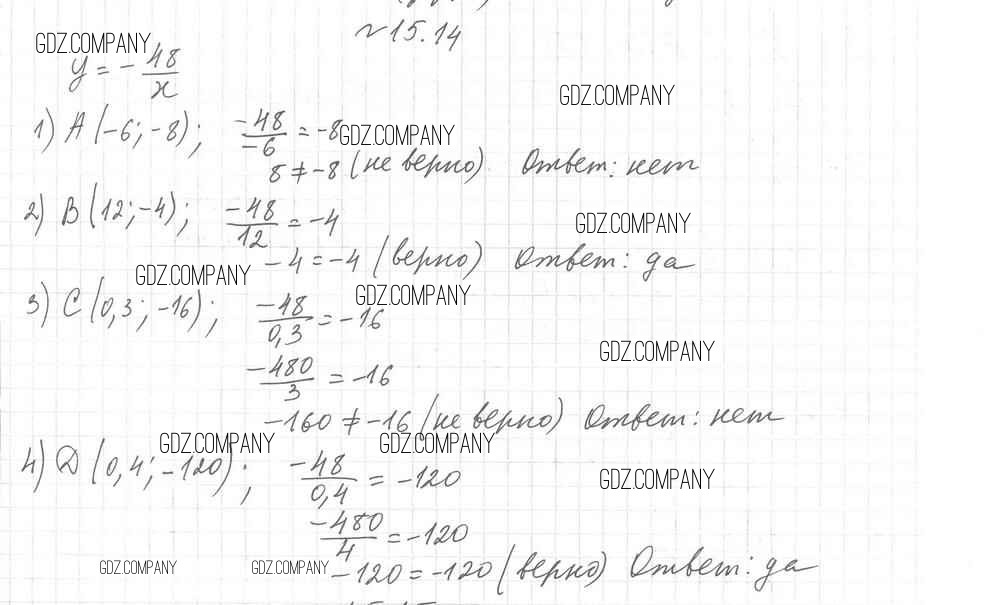 №15.14
GDZ.COMPANY
y = - 48/x
GDZ.COMPANY
1) A (-6; -8); -48/-6 = -8 GDZ.COMPANY
8 ≠ -8 (не верно) Ответ: нет
2) B (12; -4); -48/12 = -4 GDZ.COMPANY
-4 = -4 (верно) Ответ: да
GDZ.COMPANY
3) C (0,3; -16); -48/0,3 = -16 GDZ.COMPANY
GDZ.COMPANY
-480/3 = -16
-160 ≠ -16 (не верно) Ответ: нет
GDZ.COMPANY GDZ.COMPANY
4) D (0,4; -120); -48/0,4 = -120 GDZ.COMPANY
-480/4 = -120
GDZ.COMPANY GDZ.COMPANY -120 = -120 (верно) Ответ: да